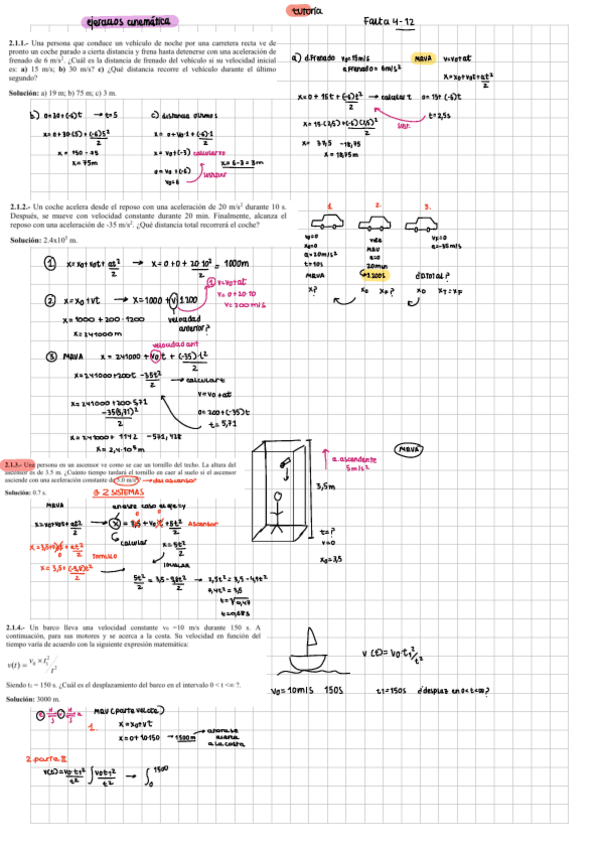 tutoría
ejercicios cinemática
Falta 4-12
2.1.1.- Una persona que conduce un vehículo de noche por una carretera recta ve de
pronto un coche parado a cierta distancia y frena hasta detenerse con una aceleración de
frenado de 6 m/s². ¿Cuál es la distancia de frenado del vehículo si su velocidad inicial
es: a) 15 m/s; b) 30 m/s? c) ¿Qué distancia recorre el vehículo durante el último
segundo?
Solución: a) 19 m; b) 75 m; c) 3 m.
a) d.Frenado v₀=15m/s
a.Frenado= 6m/s²
MRUA
v=v₀+at
x=x₀+v₀t+at²/2
x=0+15t+(-6)t²/2 → calcular t
0=15+(-6)t
t=2,5s
x=15·(2,5)+(-6)(2,5)²/2
x= 37,5 -18,75
x = 18,75m
b) 0=30+(-6)t → t=5
x=0+30·(5)+(-6)5²/2
x = 150 -75
x= 75m
c) distancia último s
x= 0+v₀·1+(-6)·1/2
x= v₀+(-3) calcular v₀
0= v₀ +(-6)
v₀=6
x=6-3=3m
2.1.2.- Un coche acelera desde el reposo con una aceleración de 20 m/s² durante 10 s.
Después, se mueve con velocidad constante durante 20 min. Finalmente, alcanza el
reposo con una aceleración de -35 m/s². ¿Qué distancia total recorrerá el coche?
Solución: 2.4x10⁵ m.
1. 2. 3.
v₀=0
x₀=0
a=20m/s²
t=10s
MRUA
x?
MRU
a=0
20min
1200s
x₀ x₀?
a=-35m/s²
d total?
x₀ x_T=x_F
① x=x₀+v₀t+at²/2 → x=0+0+20·10²/2 = 1000m
② x=x₀+vt → x=1000+v·1200
① v=v₀+at
v= 0+20·10
v=200m/s
x=1000+200·1200
x=241000m
velocidad
anterior?
velocidad ant
③ MRUA x= 241000+v₀t+(-35)·t²/2
x=241000+200t-35t²/2 → calcular t
v=v₀+at
x=241000+200·5,71
-35(5,71)²/2
0=200+(-35)t
t= 5,71
x=241000+ 1142 -571,428
x= 2,4·10⁵m
2.1.3.- Una persona en un ascensor ve como se cae un tornillo del techo. La altura del
ascensor es de 3.5 m. ¿Cuánto tiempo tardará el tornillo en caer al suelo si el ascensor
asciende con una aceleración constante de 5.0 m/s²? → del ascensor
Solución: 0.7 s.
2 SISTEMAS
a.ascendente
5m/s²
MRUA
3,5m
t=?
v=0
x₀=3,5
MRUA
x=x₀+v₀t+at²/2
Ascensor
calcular
x=5t²/2
tornillo
x=3,5+(-9,8)t²/2
igualar
5t²/2 = 3,5-9,8t²/2 → 2,5t²=3,5-4,9t²
7,4t²=3,5
2.1.4.- Un barco lleva una velocidad constante v₀ =10 m/s durante 150 s. A
continuación, para sus motores y se acerca a la costa. Su velocidad en función del
tiempo varía de acuerdo con la siguiente expresión matemática:
v(t) = v₀ × t₁² / t²
Siendo t₁ = 150 s. ¿Cuál es el desplazamiento del barco en el intervalo 0 < t < ∞ ?.
Solución: 3000 m.
v(t)= v₀t₁²/t²
v₀=10m/s 150s t1=150s ¿desplaz en 0<t<∞?
MRU (parte velocidad cte)
1.
x=x₀+vt
x=0+10·150 → 1500m
a la costa
2.parte II
v(t)=v₀t₁²/t² ∫v₀t₁²/t² → ∫₀¹⁵⁰⁰